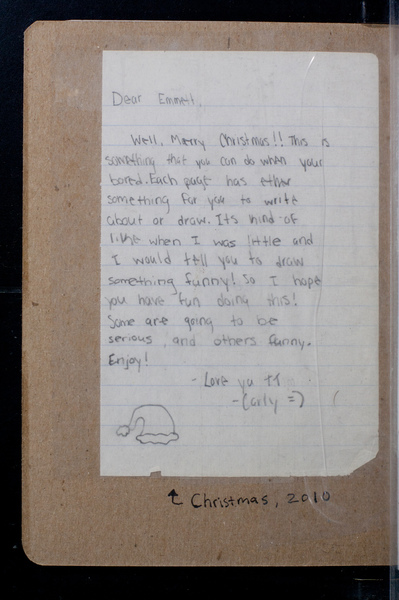 Dear Emmett,
Well, Merry Christmas!! This is
something that you can do when your
bored. Each page has either
something for you to write
about or draw. Its kind of
like when I was little and
I would tell you to draw
something funny! So I hope
you have fun doing this!
Some are going to be
serious, and others funny.
Enjoy!
- Love ya tt
-Carly =)
↑ Christmas, 2010